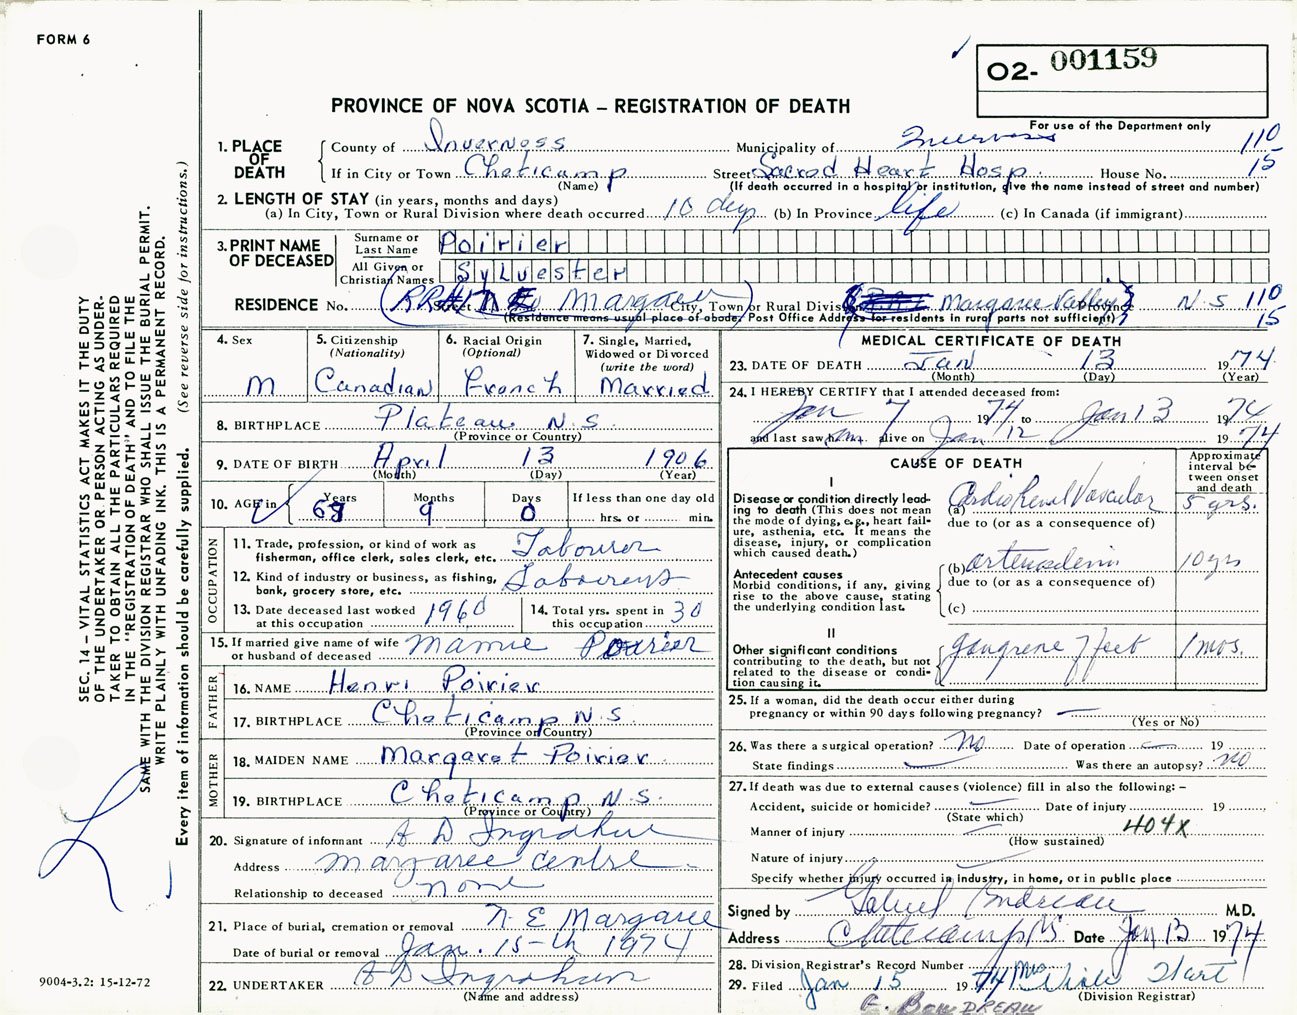 FORM 6
O2- 001159
PROVINCE OF NOVA SCOTIA – REGISTRATION OF DEATH
For use of the Department only
1. PLACE OF DEATH
County of Inverness Municipality of Inverness 110
If in City or Town Cheticamp Street Sacred Heart Hosp. House No. 15
(Name) (If death occurred in a hospital or institution, give the name instead of street and number)
2. LENGTH OF STAY (in years, months and days)
(a) In City, Town or Rural Division where death occurred 10 days (b) In Province life (c) In Canada (if immigrant)
3. PRINT NAME OF DECEASED
Surname or Last Name Poirier
All Given or Christian Names Sylvester
RESIDENCE No. Street N E Margaree City, Town or Rural Division Margaree Valley Province N S 110
(Residence means usual place of abode. Post Office Address for residents in rural parts not sufficient) 15
4. Sex
M
5. Citizenship
(Nationality)
Canadian
6. Racial Origin
(Optional)
French
7. Single, Married,
Widowed or Divorced
(write the word)
Married
8. BIRTHPLACE Plateau N.S.
(Province or Country)
9. DATE OF BIRTH April 13 1906
(Month) (Day) (Year)
10. AGE in Years Months 9 Days 0
If less than one day old
hrs. or min.
OCCUPATION
11. Trade, profession, or kind of work as
fisherman, office clerk, sales clerk, etc. Labourer
12. Kind of industry or business, as fishing,
bank, grocery store, etc.
13. Date deceased last worked
at this occupation 1960
14. Total yrs. spent in
this occupation 30
15. If married give name of wife
or husband of deceased Mamie Poirier
FATHER
16. NAME Henri Poirier
17. BIRTHPLACE Cheticamp N.S.
(Province or Country)
MOTHER
18. MAIDEN NAME Margaret Poirier
19. BIRTHPLACE Cheticamp N.S.
(Province or Country)
20. Signature of informant A D Ingraham
Address Margaree Centre
Relationship to deceased none
21. Place of burial, cremation or removal N. E Margaree
Date of burial or removal Jan. 15-th 1974
22. UNDERTAKER A D Ingraham
(Name and address)
MEDICAL CERTIFICATE OF DEATH
23. DATE OF DEATH Jan 13 1974
(Month) (Day) (Year)
24. I HEREBY CERTIFY that I attended deceased from:
Jan 7 1974 to Jan 13 1974
and last saw him alive on Jan 12 1974
CAUSE OF DEATH
Approximate interval between onset and death
I
Disease or condition directly leading to death (This does not mean the mode of dying, e.g., heart failure, asthenia, etc. It means the disease, injury, or complication which caused death.)
(a) Cardio Renal Vascular 5 yrs.
due to (or as a consequence of)
Antecedent causes
Morbid conditions, if any, giving rise to the above cause, stating the underlying condition last.
(b) 10 yrs
due to (or as a consequence of)
(c)
II
Other significant conditions
contributing to the death, but not related to the disease or condition causing it.
gangrene of feet 1 mos.
25. If a woman, did the death occur either during
pregnancy or within 90 days following pregnancy? —
(Yes or No)
26. Was there a surgical operation? No Date of operation — 19
State findings — Was there an autopsy? no
27. If death was due to external causes (violence) fill in also the following: –
Accident, suicide or homicide? — Date of injury 19
(State which)
Manner of injury — 404X
(How sustained)
Nature of injury
Specify whether injury occurred in industry, in home, or in public place
Signed by Gabriel Boudreau M.D.
Address Cheticamp NS Date Jan 13 1974
28. Division Registrar's Record Number
29. Filed Jan 15 1974 Mrs Viola Hart
(Division Registrar)
E. BOUDREAU
SEC. 14 – VITAL STATISTICS ACT MAKES IT THE DUTY
OF THE UNDERTAKER OR PERSON ACTING AS UNDER-
TAKER TO OBTAIN ALL THE PARTICULARS REQUIRED
IN THE "REGISTRATION OF DEATH" AND TO FILE THE
SAME WITH THE DIVISION REGISTRAR WHO SHALL ISSUE THE BURIAL PERMIT.
WRITE PLAINLY WITH UNFADING INK. THIS IS A PERMANENT RECORD.
Every item of information should be carefully supplied. (See reverse side for instructions.)
9004-3.2: 15-12-72